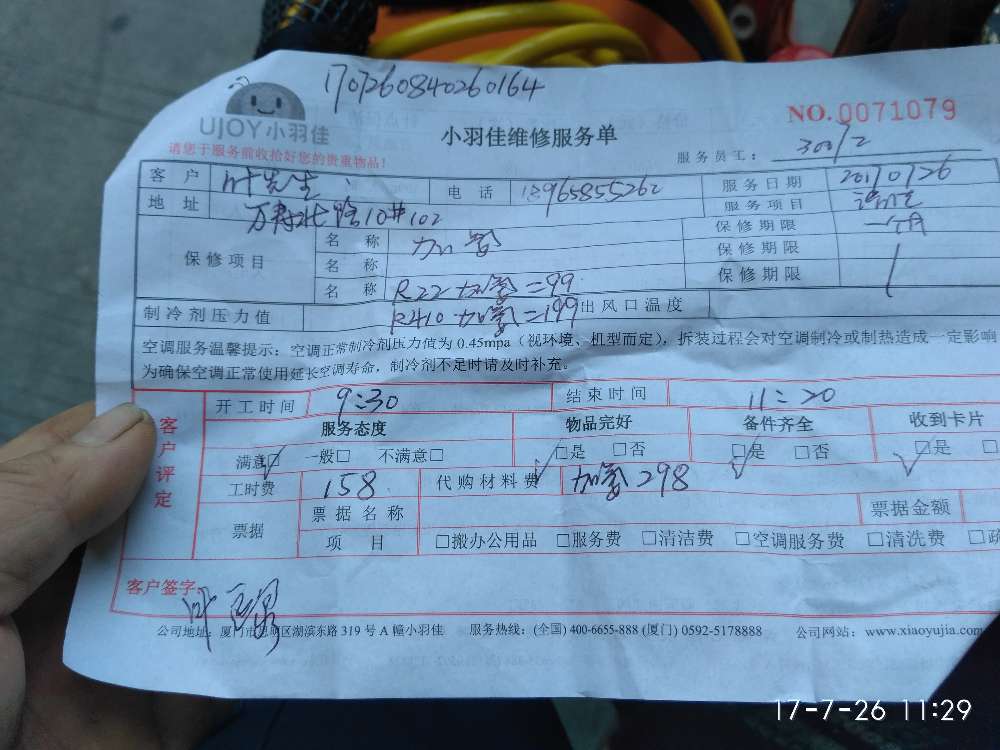 1707260840260164
UJOY小羽佳
小羽佳维修服务单
NO.0071079
请您于服务前收拾好您的贵重物品!
服务员工:
客户 叶先生 电话 18965855262 服务日期 20170726
地址 万寿北路10#102 服务项目
保修项目 名称 加氟 保修期限 一个月
名称 保修期限
名称 R22加氟=99 保修期限
制冷剂压力值 R410加氟=199 出风口温度
空调服务温馨提示:空调正常制冷剂压力值为 0.45mpa(视环境、机型而定),拆装过程会对空调制冷或制热造成一定影响
为确保空调正常使用延长空调寿命,制冷剂不足时请及时补充。
客户评定
开工时间 9:30 结束时间 11:20
服务态度 物品完好 备件齐全 收到卡片
满意□ 一般□ 不满意□ □是 □否 □是 □否 □是 □
工时费 158 代购材料费 加氟298
票据 票据名称 票据金额
项目 □搬办公用品 □服务费 □清洁费 □空调服务费 □清洗费 □疏
客户签字:
公司地址:厦门市思明区湖滨东路 319 号 A 幢小羽佳 服务热线:(全国) 400-6655-888 (厦门) 0592-5178888 公司网站:www.xiaoyujia.com
17-7-26 11:29